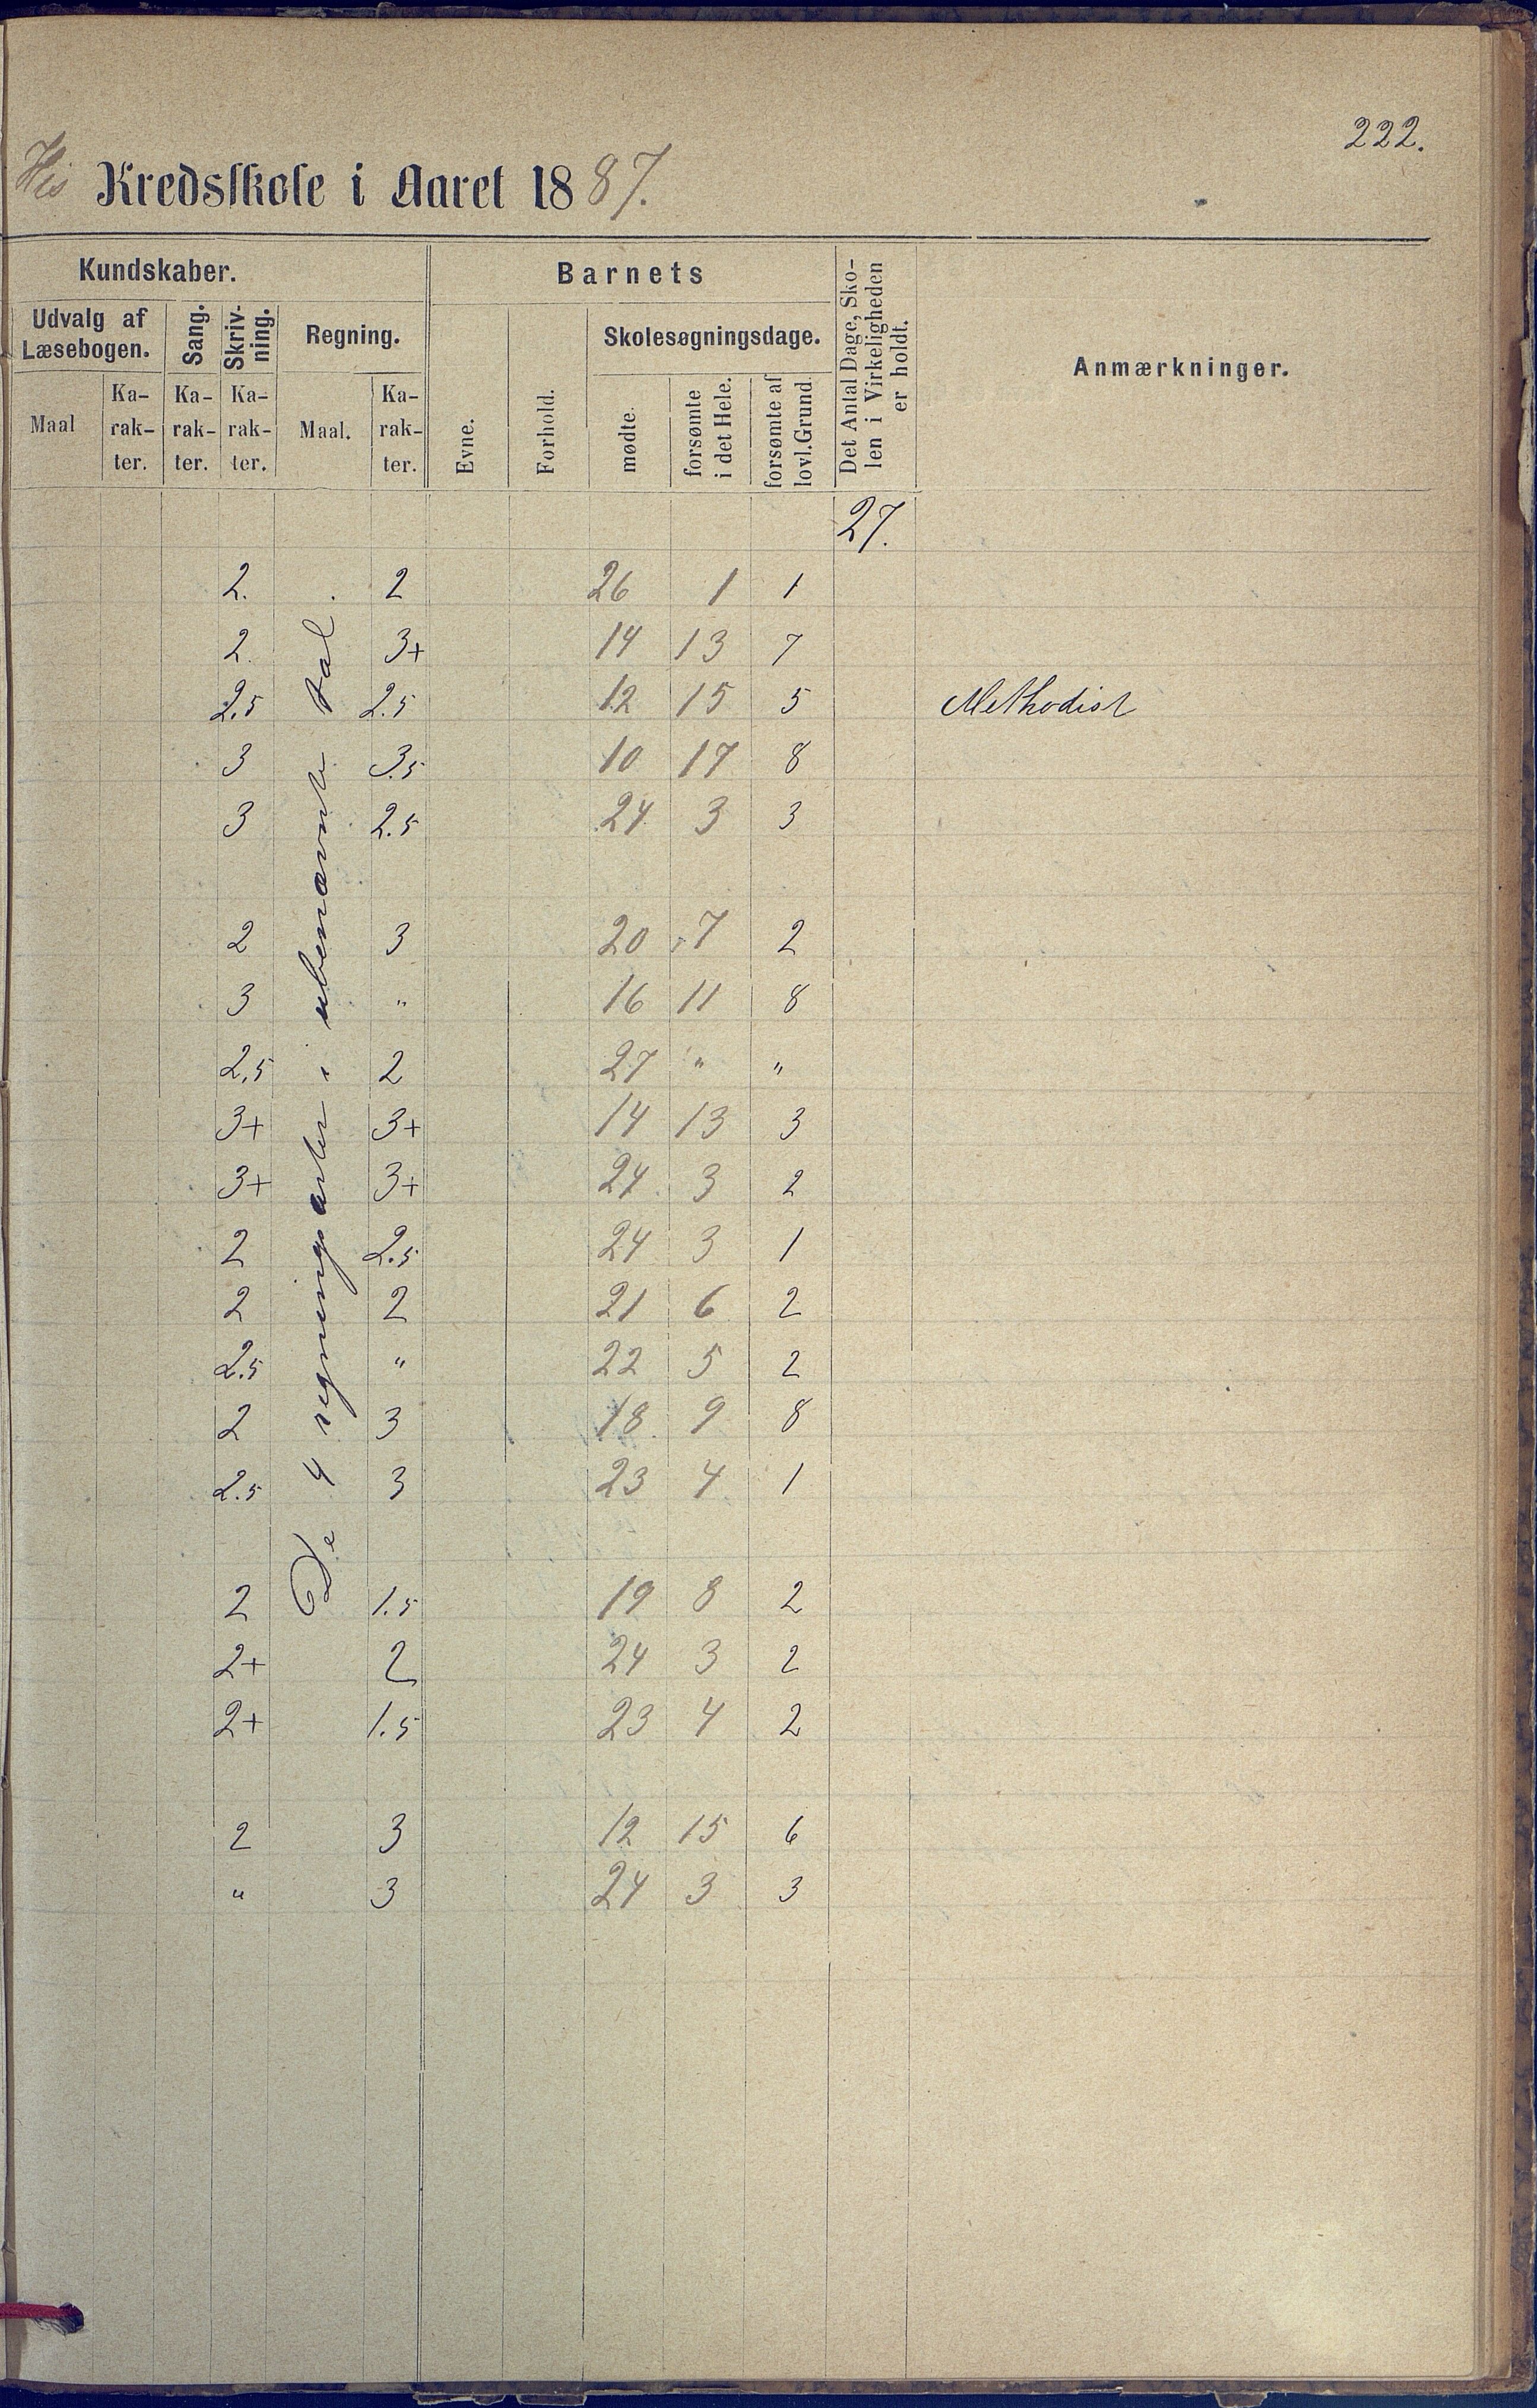 222.
His Kredsskole i Aaret 1887.
Kundskaber.
Barnets
Det Antal Dage, Sko-
len i Virkeligheden
er holdt.
Anmærkninger.
Udvalg af
Læsebogen.
Sang.
Skriv-
ning.
Regning.
Evne.
Forhold.
Skolesøgningsdage.
Maal
Ka-
rak-
ter.
Ka-
rak-
ter.
Ka-
rak-
ter.
Maal.
Ka-
rak-
ter.
mødte.
forsømte
i det Hele.
forsømte af
lovl. Grund.
27.
De 4 regningsarter i ubenævnte tal
2. 2 26 1 1
2. 3+ 14 13 7
2.5 2.5 12 15 5 Methodist
3 3.5 10 17 8
3 2.5 24 3 3
2 3 20 7 2
3 " 16 11 8
2.5 2 27 " "
3+ 3+ 14 13 3
3+ 3+ 24 3 2
2 2.5 24 3 1
2 2 21 6 2
2.5 " 22 5 2
2 3 18 9 8
2.5 3 23 4 1
2 1.5 19 8 2
2+ 2 24 3 2
2+ 1.5 23 4 2
2 3 12 15 6
" 3 24 3 3